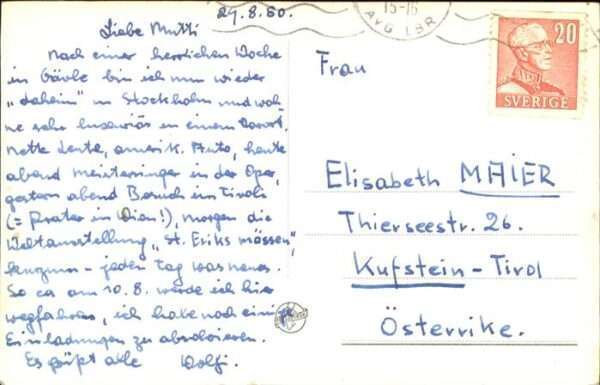 29.8.50.
Liebe Mutti
Nach einer herrlichen Woche
in Gävle bin ich nun wieder
"daheim" in Stockholm und woh-
ne sehr luxuriös in einem Vorort.
Nette Leute, amerik. Auto, heute
abend Meistersinger in der Oper,
gestern abend Besuch im Tivoli
(= Prater in Wien!), morgen die
Weltausstellung "St. Eriks mässen",
kurzum - jeden Tag was neues.
So ca am 10.8. werde ich hier
wegfahren, ich habe noch einige
Einladungen zu absolvieren.
Es grüßt alle Wolfi.
15-16
AVG LBR
20
SVERIGE
Frau
Elisabeth MAIER
Thierseestr. 26.
Kufstein - Tirol
Österrike.